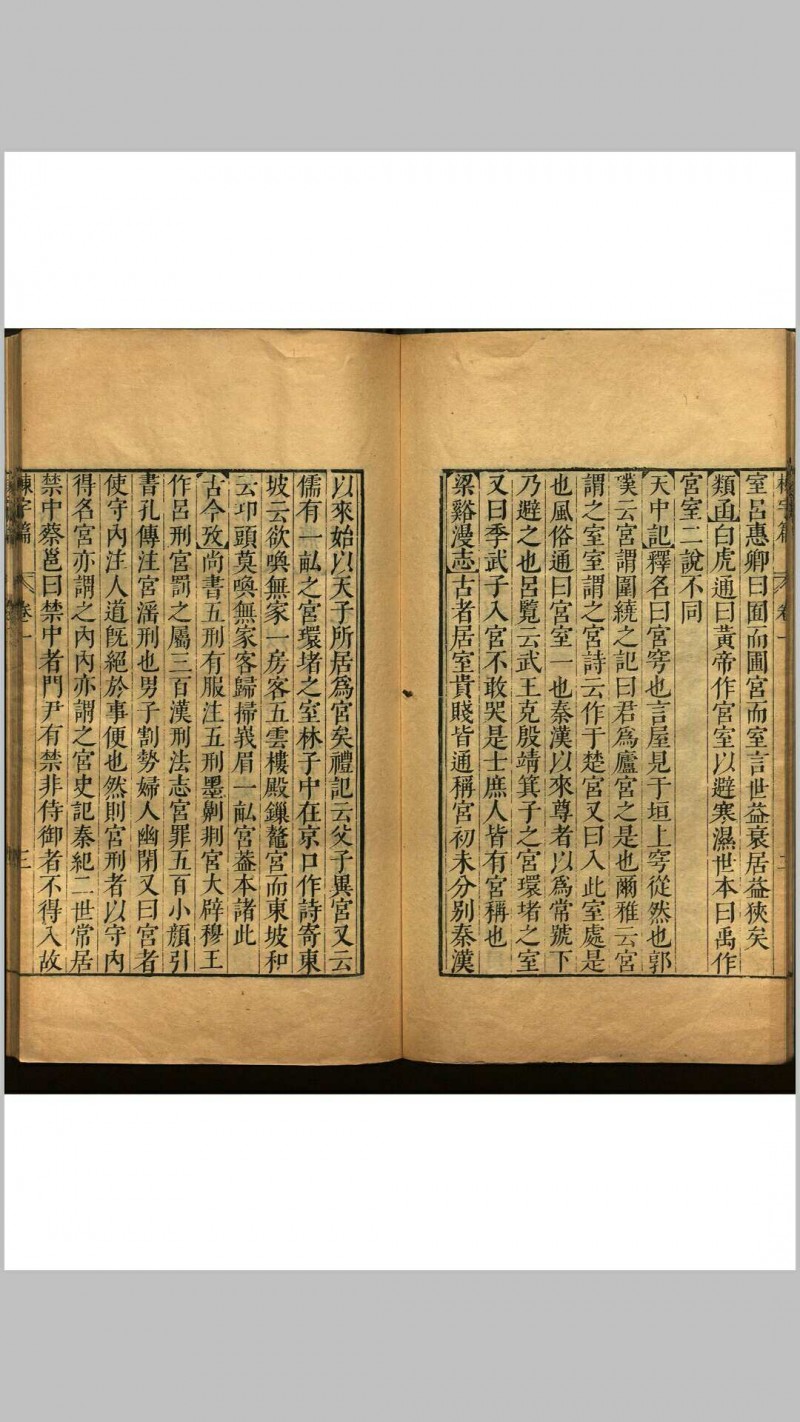 室呂惠卿曰囿而圃宮而室言世益衰居益狹矣
類函白虎通曰黃帝作宮室以避寒濕世本曰禹作
宮室二說不同
天中記釋名曰宮穹也言屋見于垣上穹從然也郭
璞云宮謂圍繞之記曰君為廬宮之是也爾雅云宮
謂之室室謂之宮詩云作于楚宮又曰入此室處是
也風俗通曰宮室一也秦漢以來尊者以為常號下
乃避之也呂覽云武王克殷靖箕子之宮環堵之室
又曰季武子入宮不敢哭是士庶人皆有宮稱也
梁谿漫志古者居室貴賤皆通稱宮初未分別秦漢
以來始以天子所居為宮矣禮記云父子異宮又云
儒有一畝之宮環堵之室林子中在京口作詩寄東
坡云欲喚無家一房客五雲樓殿鏁鼇宮而東坡和
云叩頭莫喚無家客歸掃峩眉一畝宮葢本諸此
古今攷尚書五刑有服注五刑墨劓剕宮大辟穆王
作呂刑宮罰之屬三百漢刑法志宮罪五百小顏引
書孔傳注宮淫刑也男子割勢婦人幽閉又曰宮者
使守內注人道既絕於事便也然則宮刑者以守內
得名宮亦謂之內內亦謂之宮史記秦紀二世常居
禁中蔡邕曰禁中者門尹有禁非侍御者不得入故
字篇 卷一 三